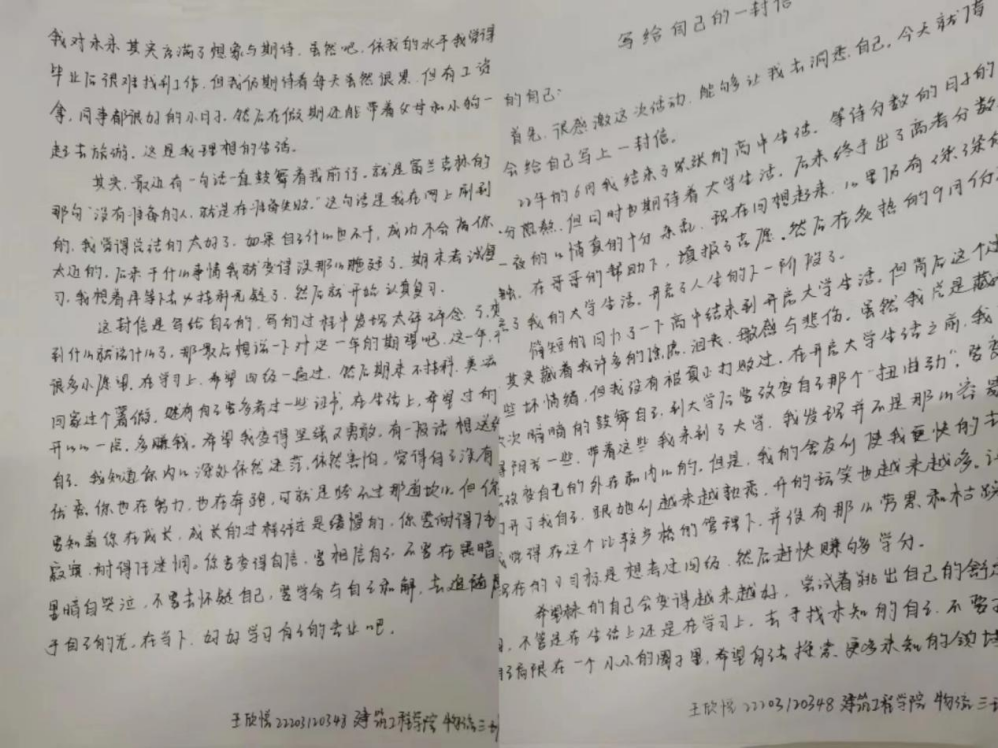 写给自己的一封信
的自己:
首先,很感激这次活动,能够让我去洞悉自己,今天就
会给自己写上一封信。
22年的6月我结束了紧张的高中生活,等待分数的日子
分煎熬,但同时也期待着大学生活,后来终于出了高考分数
一夜的心情真的十分杂乱,现在回想起来,心里仍有
在哥哥的帮助下,填报了志愿,然后在炎热的9月份
了我的大学生活,开启了人生的下一阶段了。
简短的回了一下高中结束到开启大学生活,但背后这个过
其实藏着我许多的焦虑、泪丧、敏感与悲伤,虽然我总是藏
些坏情绪,但我没有被真正打败过,在开启大学生活之前,我
次次暗暗的鼓舞自己,到大学后要改变自己那个"扭曲劲",要变
阳光一些,带着这些我来到了大学,我发现并不是那么容易
改变自己的外在和内心的,但是,我的舍友们使我更快的去
打开了我自己,跟她们越来越熟悉,开的玩笑也越来越多,
我觉得在这个比较严格的管理下,并没有那么劳累和枯燥
现在的小目标是想考过四级,然后赶快赚够学分。
希望的自己会变得越来越好,尝试着跳出自己的舒适
不管是在生活上还是在学习上,去寻找未知的自己,不要
自己局限在一个小小的圈子里,希望自己去探索更多未知的领域
王欣悦 22203120348 建筑工程学院 物流三班
我对未来其实充满了想象与期待,虽然吧,依我的水平我觉得
毕业后很难找到工作,但我仍期待着每天虽然很累,但有工资
拿,同事都很好的小日子,然后在假期还能带着父母和小狗一
起去旅游,这是我理想的生活。
其实,最近有一句话一直鼓舞着我前行,就是富兰克林的
那句"没有准备的人,就是在准备失败。"这句话是我在网上刷到
的,我觉得说的太好了,如果自己什么也不干,成功不会离你
太近的,后来干什么事情我就变得没那么拖延了,期末考试复
习,我想着再等下去必挂科无疑了,然后就开始认真复习。
这封信是写给自己的,写的过程中发现太碎碎念了,想
到什么就说什么了,那最后想说一下对这一年的期望吧,这一年,
很多小愿望,在学习上,希望四级一遍过,然后期末不挂科,
回家过个暑假,还有自己要多看过一些证书,在生活上,希望过的
开心一点,多赚钱,希望我变得坚强又勇敢,有一段话想送给
自己,我知道你内心深处依然迷茫,依然害怕,觉得自己没有
优秀,你也在努力,也在奔跑,可就是跨不过那道坎儿。但你
要知道你在成长,成长的过程总是缓慢的,你要耐得了
寂寞,耐得住迷惘。你要变得自信,要相信自己,不要在黑暗
里暗自哭泣,不要去怀疑自己,要学会与自己和解,去追随属
于自己的光,在当下,好好学习自己的专业吧。
王欣悦 22203120348 建筑工程学院 物流三班